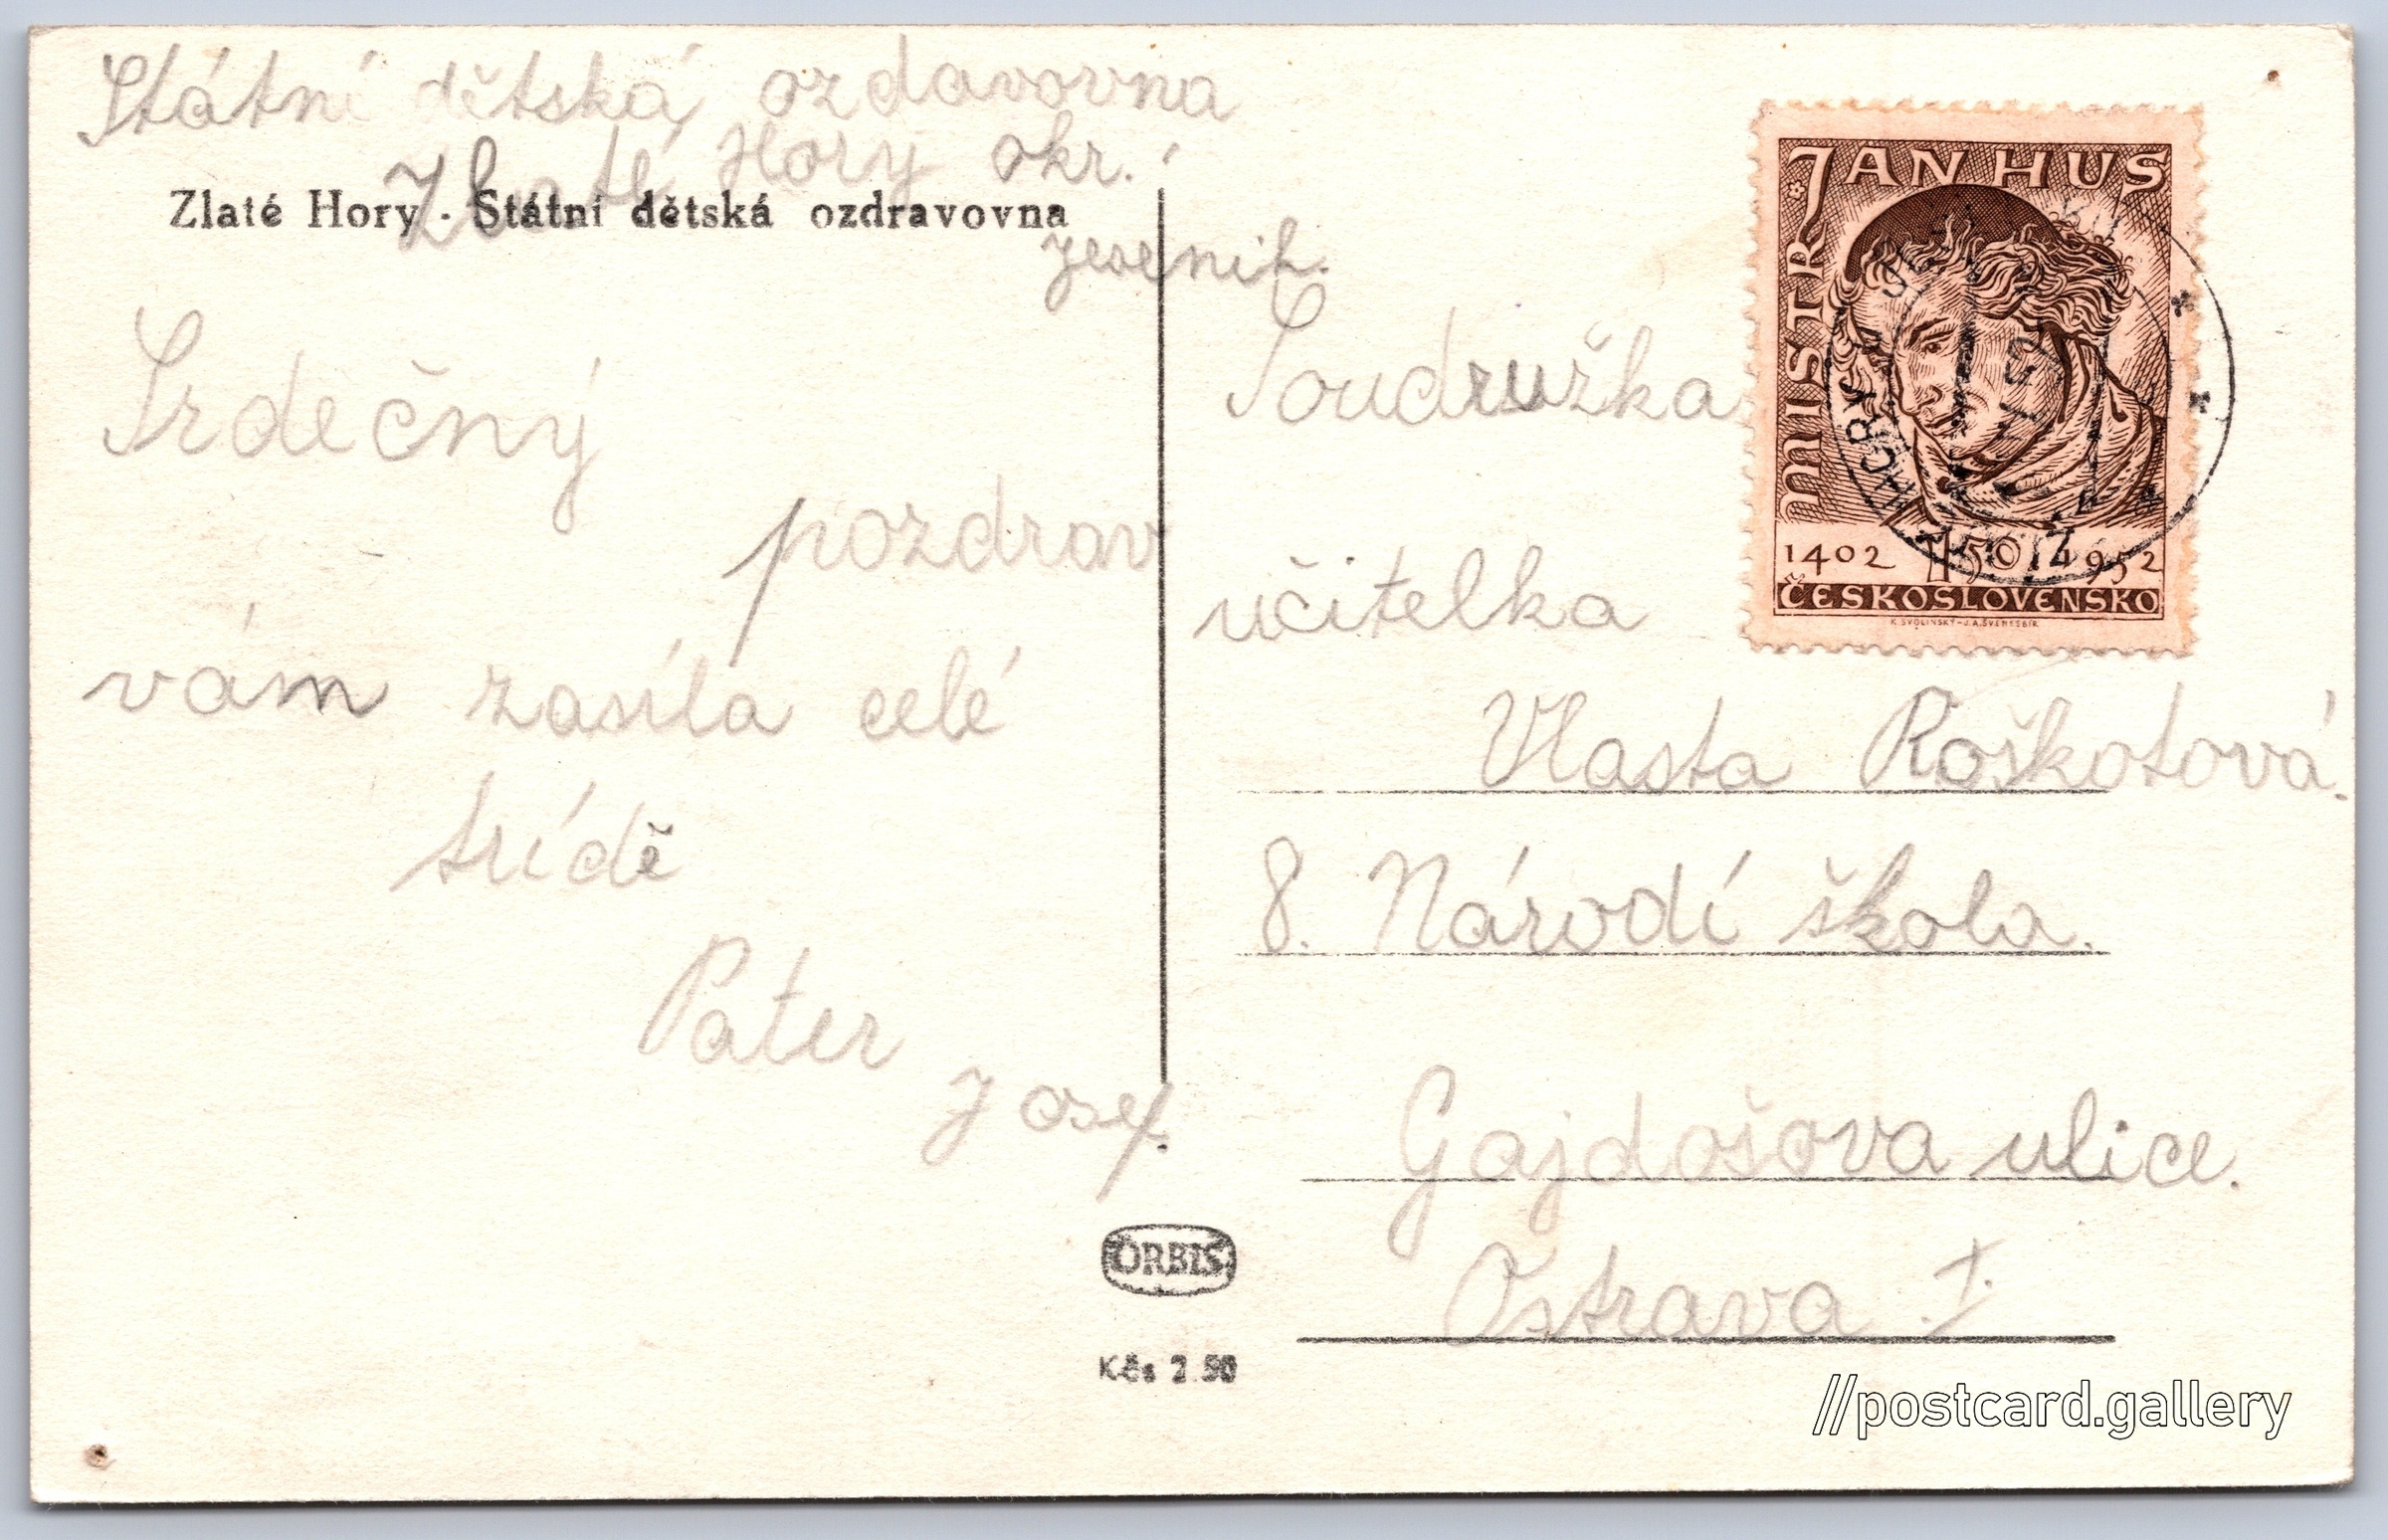 Státní dětská ozdavovna
Zlaté Hory okr.
Jeseník.
Zlaté Hory - Státní dětská ozdravovna
Srdečný
pozdrav
vám zasíla celé
trídě
Pater
Josef.
ORBIS
Kčs 2.50
MISTR JAN HUS
1402 1'50 1952
ČESKOSLOVENSKO
K. SVOLINSKÝ - J.A. ŠVENGSBÍR
ZLATÉ HORY
Soudružka
učitelka
Vlasta Roškotová.
8. Národí škola.
Gajdošova ulice.
Ostrava I.
//postcard.gallery